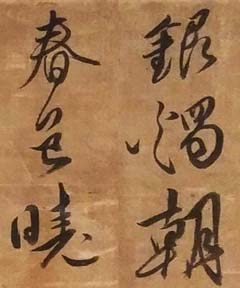 銀燭朝
春色曉